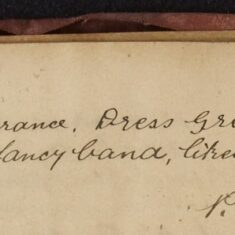 rance. Dress Gre
fancy band, liked